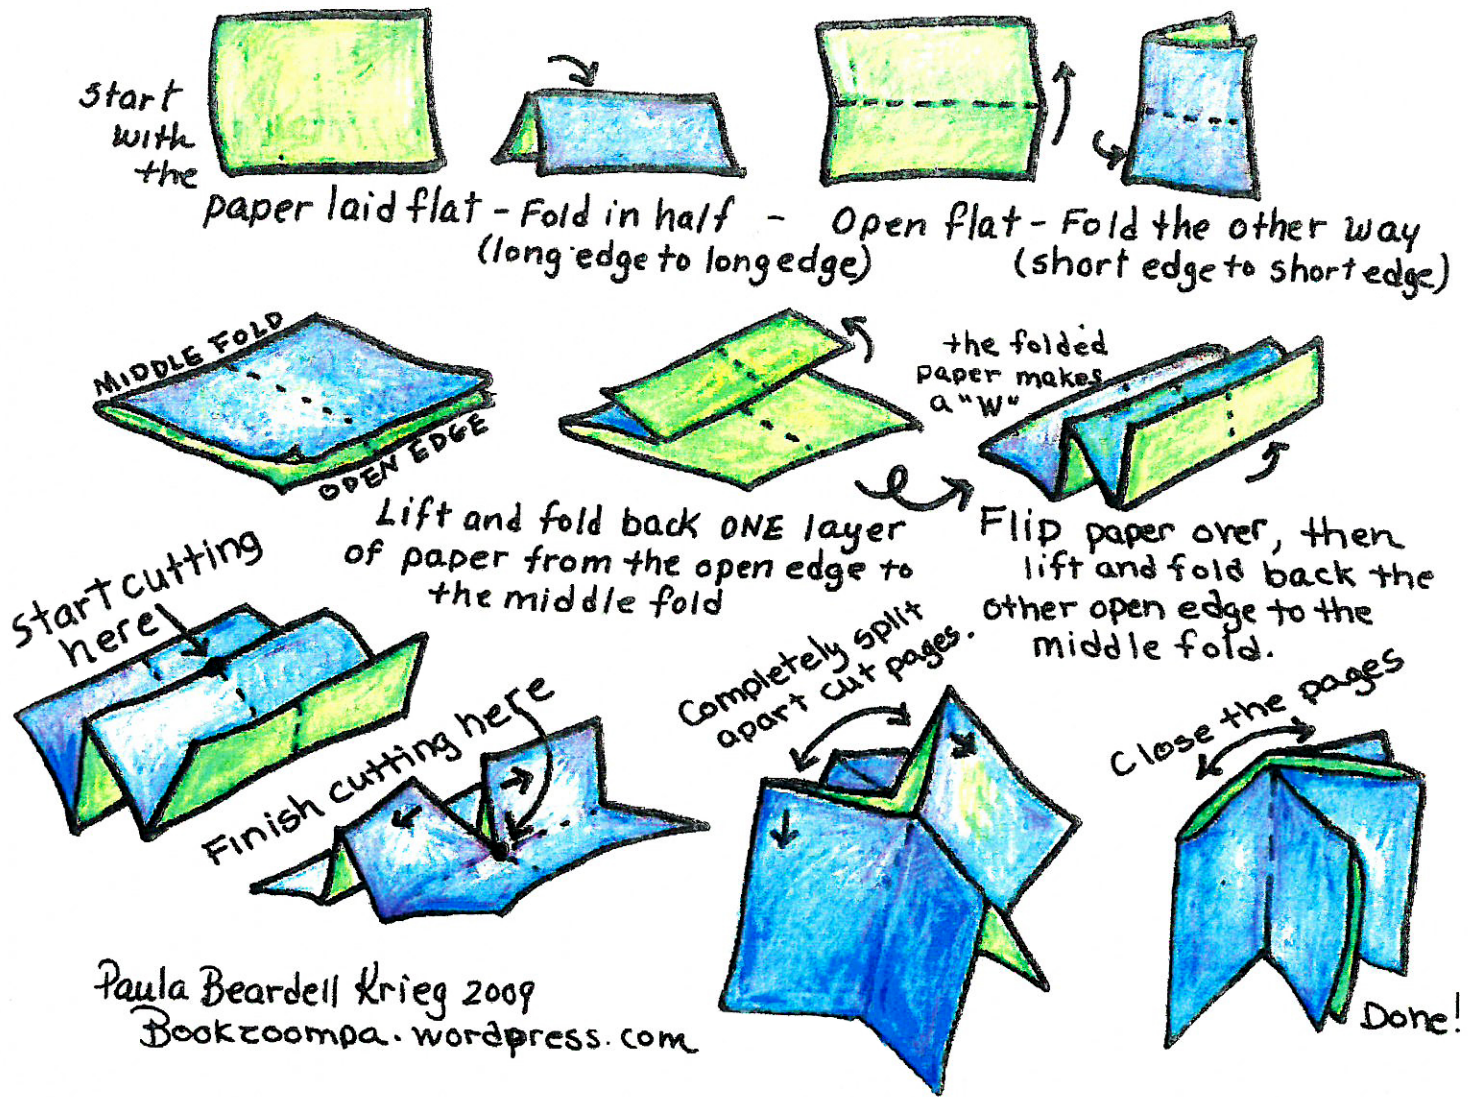 Start
with
the
paper laid flat - Fold in half - Open flat - Fold the other way
(long edge to long edge)
(short edge to short edge)
MIDDLE FOLD
OPEN EDGE
Lift and fold back ONE layer
of paper from the open edge to
the middle fold
the folded
paper makes
a "W"
Flip paper over, then
lift and fold back the
other open edge to the
middle fold.
Start cutting
here
Finish cutting here
Completely split
apart cut pages.
Close the pages
Done!
Paula Beardell Krieg 2009
Bookzoompa.wordpress.com